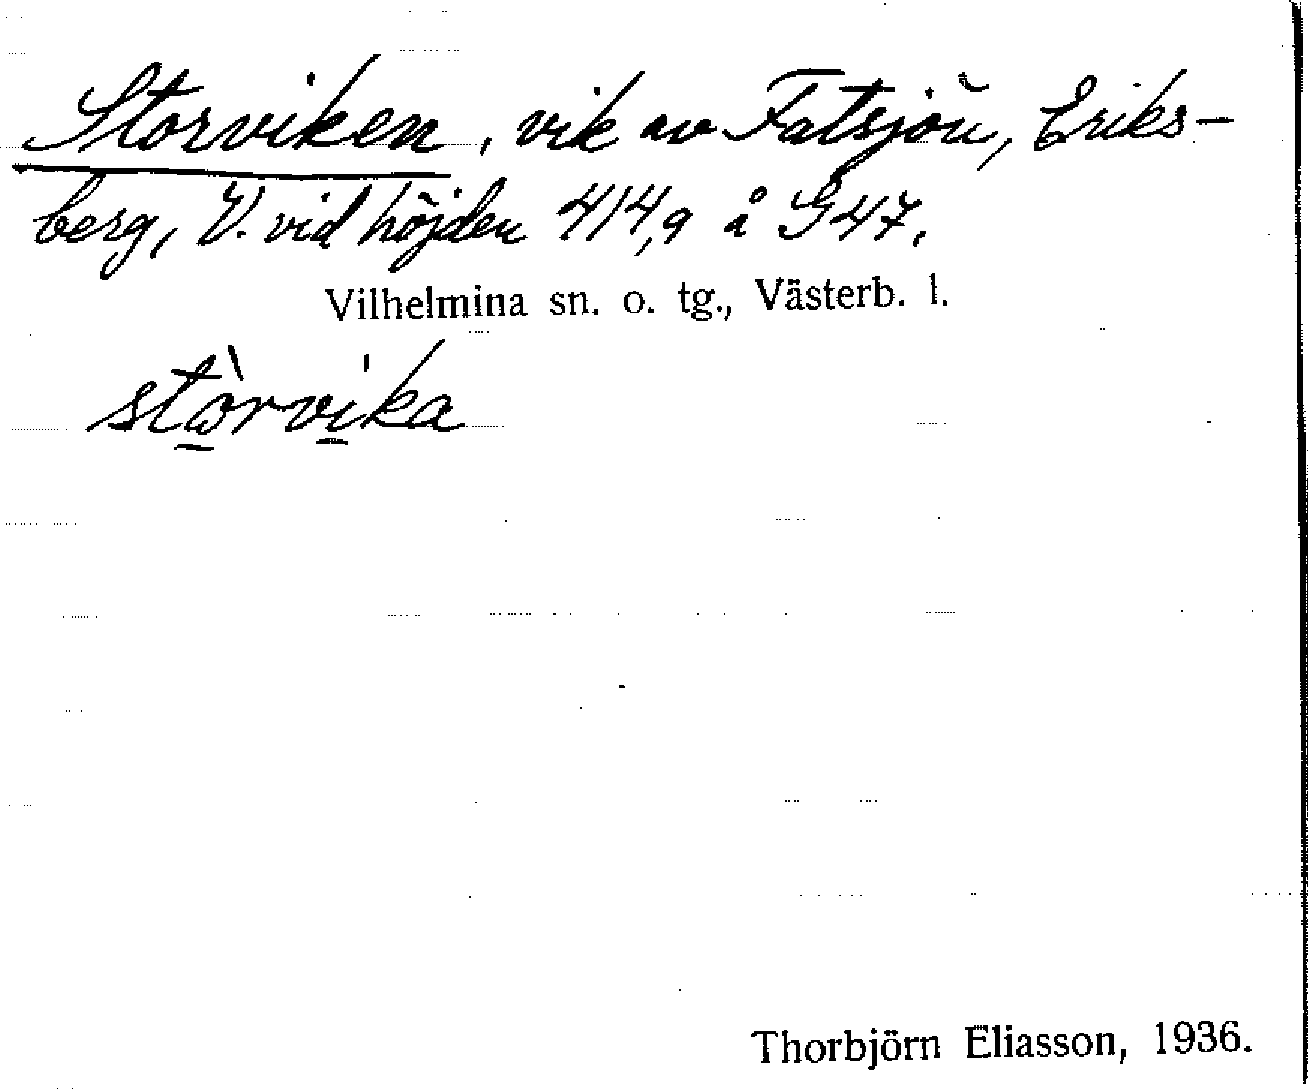 Storviken, vik av Fatsjön, Eriks-
berg, V. vid höjden 414,9 å G47.
Vilhelmina sn. o. tg., Västerb. l.
stòrvi̍ka
Thorbjörn Eliasson, 1936.